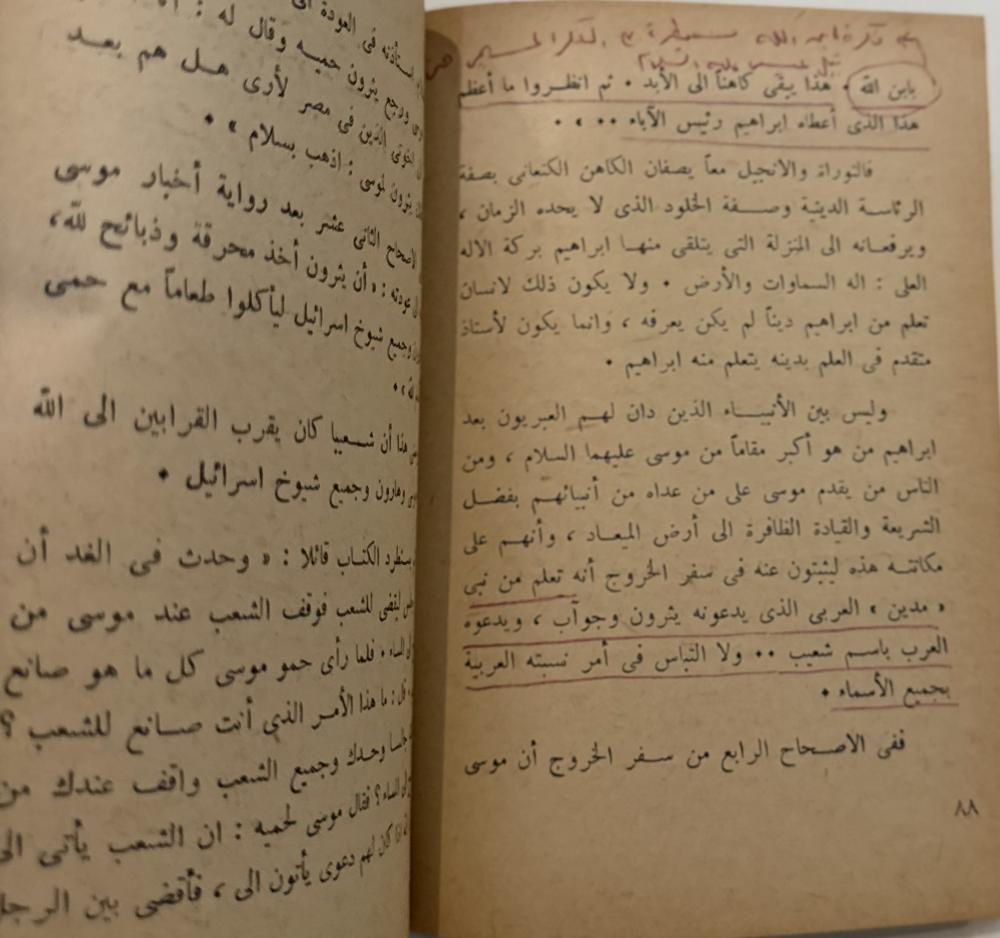 بابن الله • هذا يبقى كاهناً الى الأبد • ثم انظروا ما أعظم
هذا الذى أعطاه ابراهيم رئيس الآباء •• » •
فالتوراة والانجيل معاً يصفان الكاهن الكنعانى بصفة
الرئاسة الدينية وصفة الخلود الذى لا يحده الزمان ،
ويرفعانه الى المنزلة التى يتلقى منها ابراهيم بركة الاله
العلى : اله السماوات والأرض • ولا يكون ذلك لانسان
تعلم من ابراهيم ديناً لم يكن يعرفه ، وانما يكون لأستاذ
متقدم فى العلم بدينه يتعلم منه ابراهيم •
وليس بين الأنبياء الذين دان لهم العبريون بعد
ابراهيم من هو أكبر مقاماً من موسى عليهما السلام ، ومن
الناس من يقدم موسى على من عداه من أنبيائهم بفضل
الشريعة والقيادة الظافرة الى أرض الميعاد ، وأنهم على
مكانته هذه ليثبتون عنه فى سفر الخروج أنه تعلم من نبى
« مدين » العربى الذى يدعونه يثرون وجوآب ، ويدعوه
العرب باسم شعيب •• ولا التباس فى أمر نسبته العربية
بجميع الأسماء •
ففى الاصحاح الرابع من سفر الخروج أن موسى
٨٨
فى العودة
ورجع يثرون حميه وقال له :
الذين فى مصر لأرى هل هم بعد
يثرون لموسى : اذهب بسلام » •
الاصحاح الثانى عشر بعد رواية أخبار موسى
عودته : « أن يثرون أخذ محرقة وذبائح لله،
وجميع شيوخ اسرائيل ليأكلوا طعاماً مع حمى
» •
هذا أن شعيبا كان يقرب القرابين الى الله
وهارون وجميع شيوخ اسرائيل •
الكتاب قائلا : « وحدث فى الغد أن
ليقضى للشعب فوقف الشعب عند موسى من
المساء • فلما رأى حمو موسى كل ما هو صانع
قال : ما هذا الأمر الذى أنت صانع للشعب ؟
جالسا وحدك وجميع الشعب واقف عندك من
المساء؟ فقال موسى لحميه : ان الشعب يأتى الى
كان لهم دعوى يأتون الى ، فأقضى بين الرجل